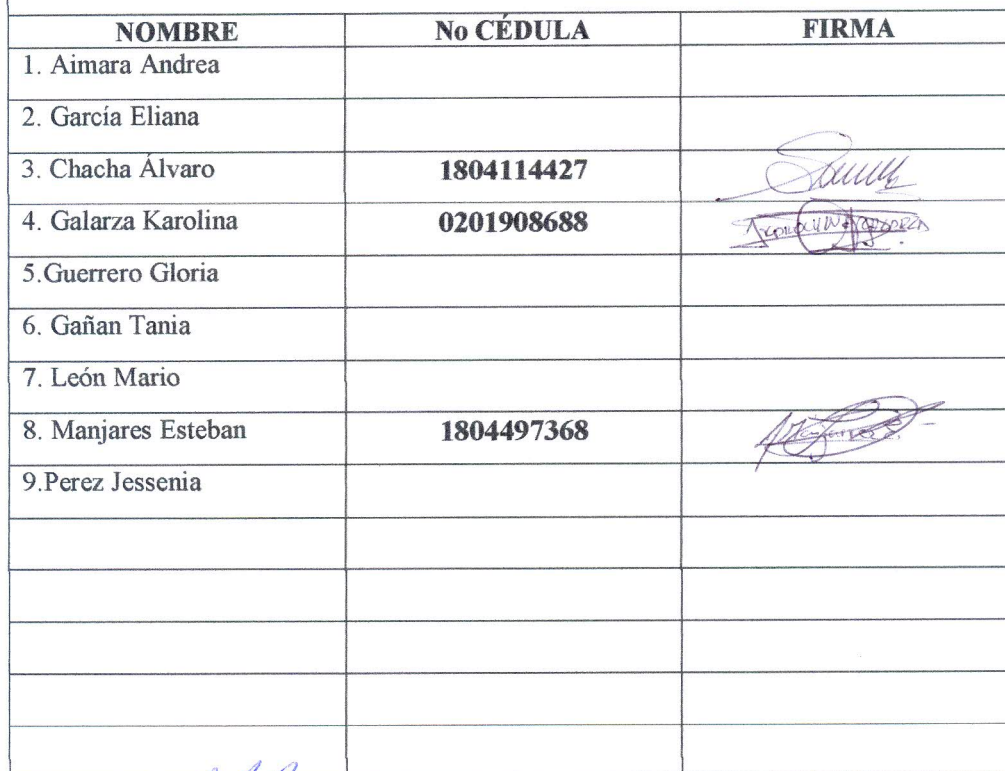 NOMBRE No CÉDULA FIRMA
1. Aimara Andrea
2. García Eliana
3. Chacha Álvaro 1804114427
4. Galarza Karolina 0201908688
5.Guerrero Gloria
6. Gañan Tania
7. León Mario
8. Manjares Esteban 1804497368
9.Perez Jessenia